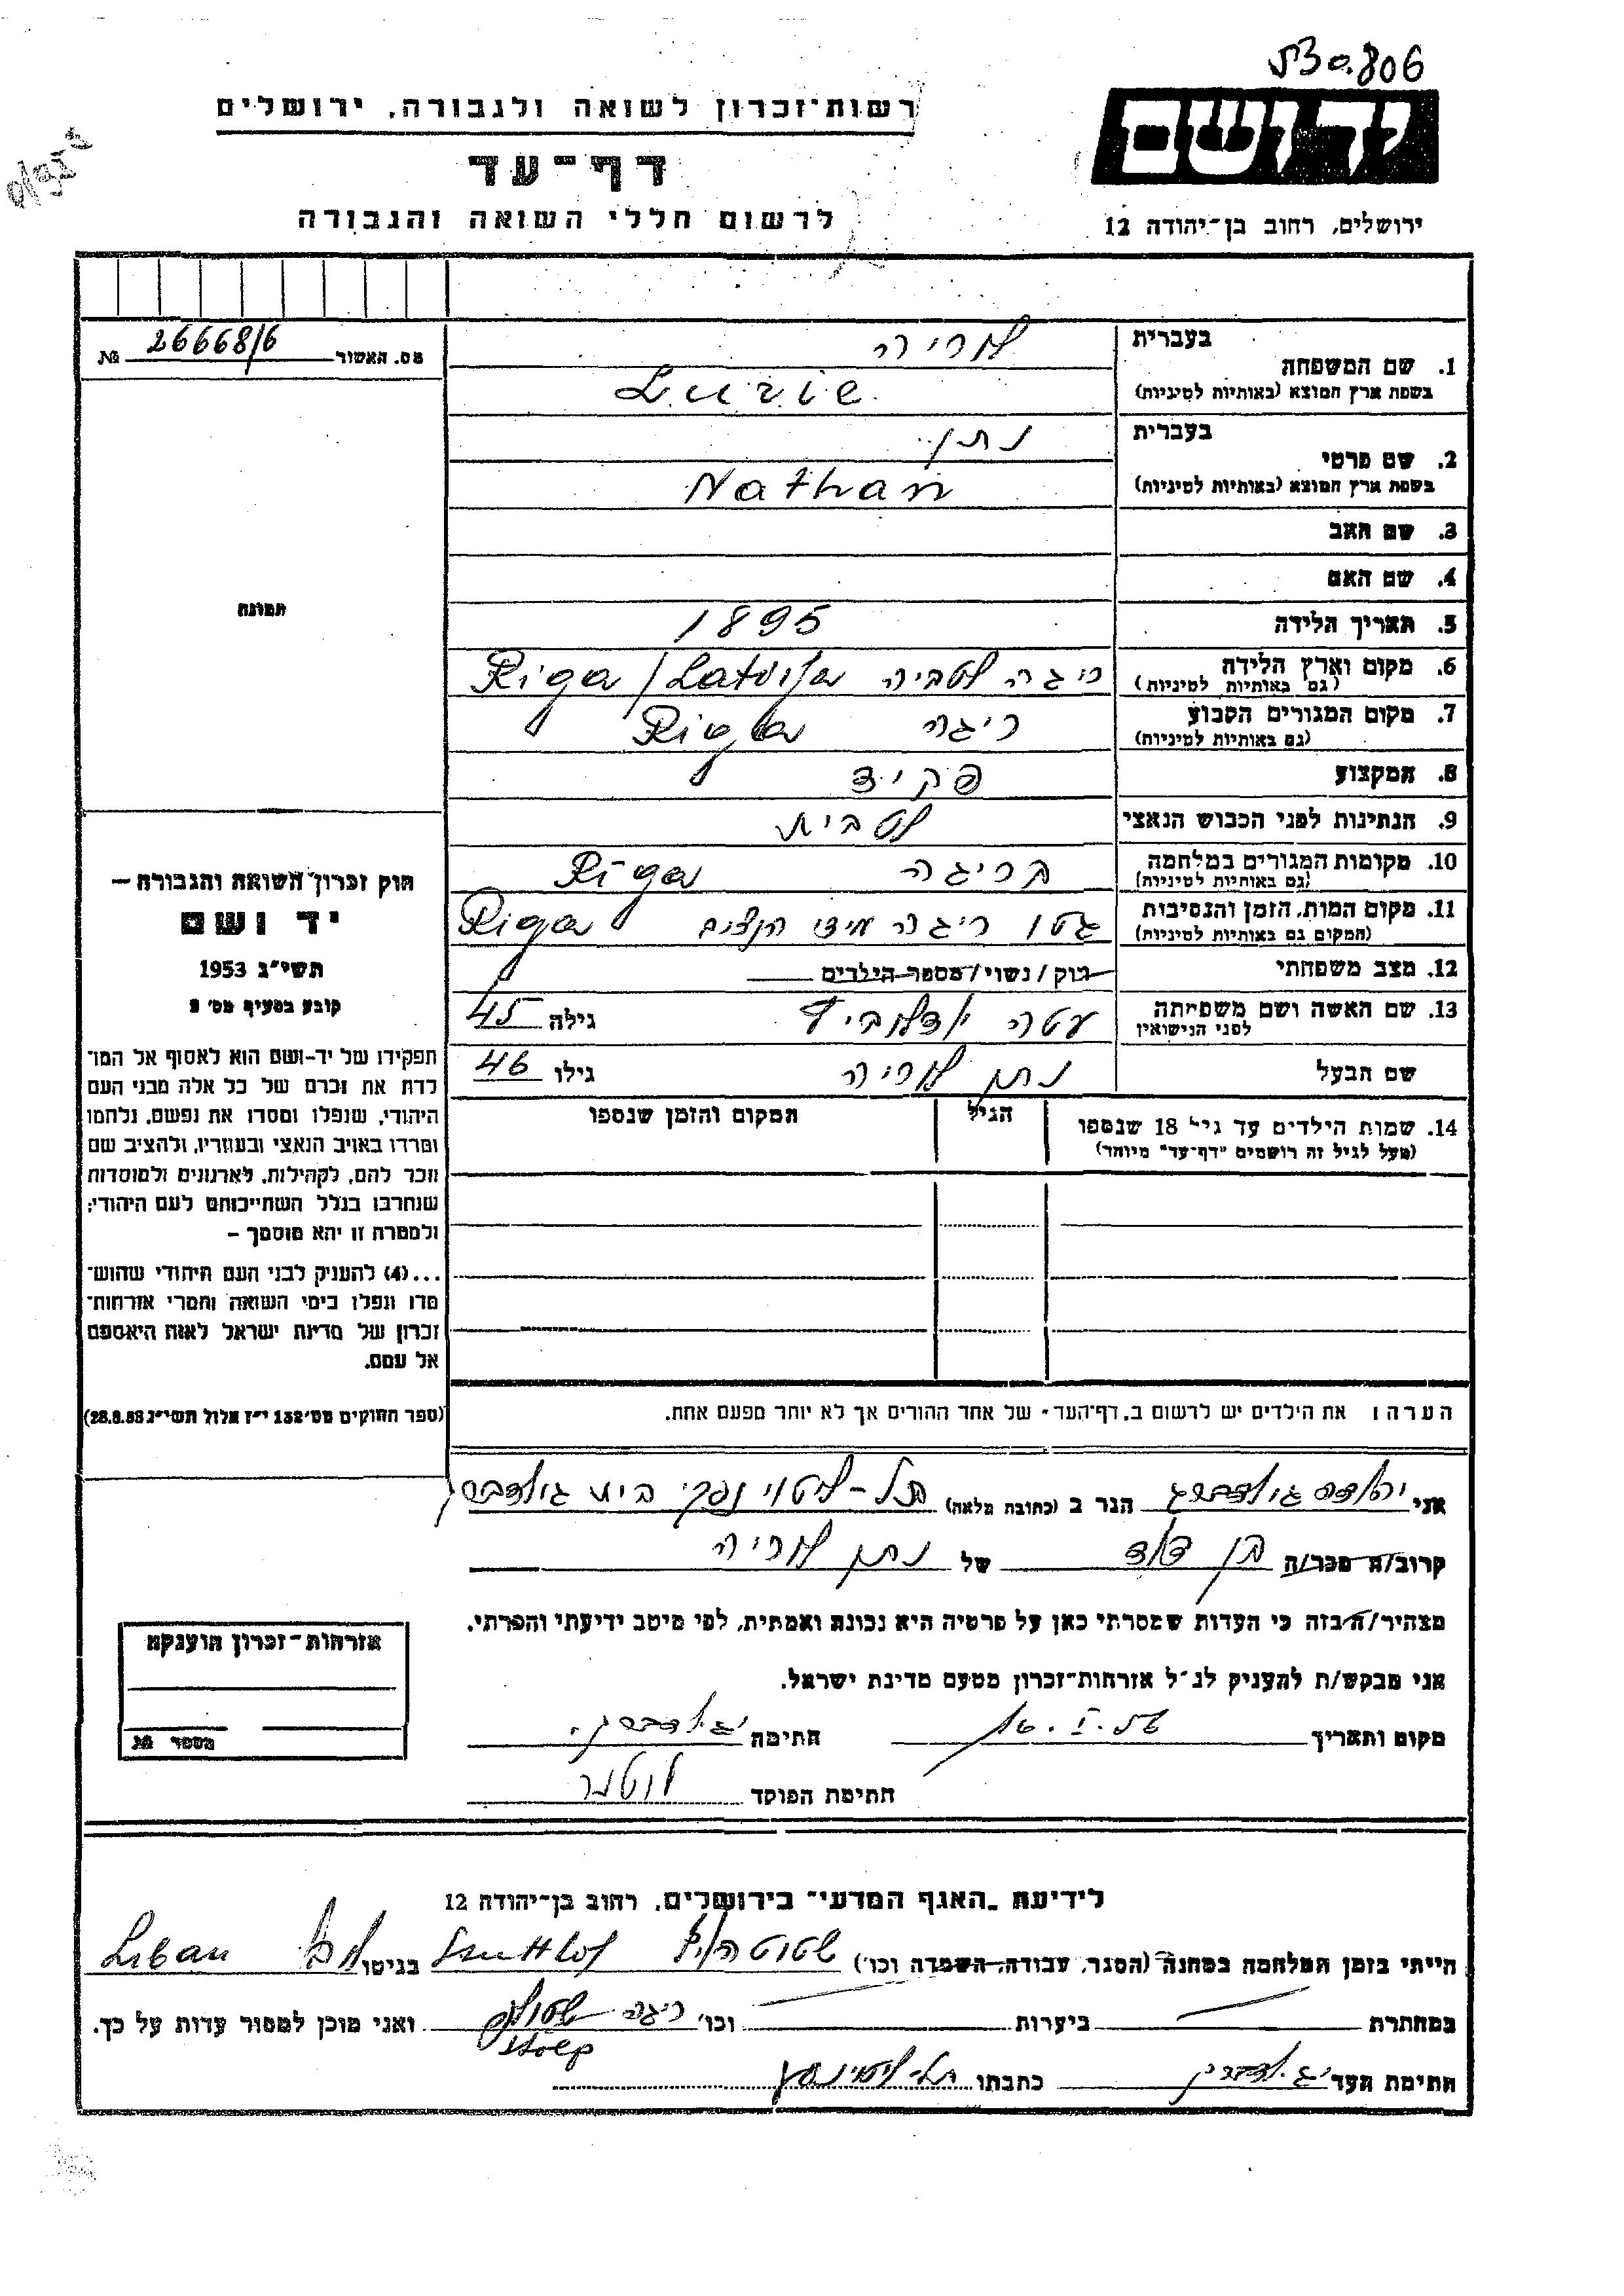 530.806
יד ושם
ירושלים, רחוב בן-יהודה 12
רשות-זכרון לשואה ולגבורה, ירושלים
דף-עד
לרשום חללי השואה והגבורה
מס. האשור 26668/6 №
תמונה
1. שם המשפחה
בעברית לוריה
בשפת ארץ המוצא (באותיות לטיניות) Lurie
2. שם פרטי
בעברית נתן
בשפת ארץ המוצא (באותיות לטיניות) Nathan
3. שם האב
4. שם האם
5. תאריך הלידה 1895
6. מקום וארץ הלידה ריגה לטביה Riga / Latvija
(גם באותיות לטיניות)
7. מקום המגורים הקבוע ריגה Riga
(גם באותיות לטיניות)
8. המקצוע פקיד
9. הנתינות לפני הכבוש הנאצי לטבית
10. מקומות המגורים במלחמה בריגה Riga
(גם באותיות לטיניות)
11. מקום המות, הזמן והנסיבות גטו ריגה מידי הנצים Riga
(המקום גם באותיות לטיניות)
12. מצב משפחתי רוק/נשוי/מספר הילדים
13. שם האשה ושם משפחתה עטה גילה 45
לפני הנישואין
שם הבעל נתן לוריה גילו 46
14. שמות הילדים עד גיל 18 שנספו הגיל המקום והזמן שנספו
(מעל לגיל זה רושמים "דף-עד" מיוחד)
הערה: את הילדים יש לרשום ב"דף-העד" של אחד ההורים אך לא יותר מפעם אחת.
חוק זכרון השואה והגבורה –
יד ושם
תשי"ג 1953
קובע בסעיף מס' 2
תפקידו של יד-ושם הוא לאסוף אל המו-
לדת את זכרם של כל אלה מבני העם
היהודי, שנפלו ומסרו את נפשם, נלחמו
ומרדו באויב הנאצי ובעוזריו, ולהציב שם
וזכר להם, לקהילות, לארגונים ולמוסדות
שנחרבו בגלל השתייכותם לעם היהודי;
ולמטרה זו יהא מוסמך –
...(4) להעניק לבני העם היהודי שהוש-
מדו ונפלו בימי השואה והמרי אזרחות-
זכרון של מדינת ישראל לאות היאספם
אל עמם.
(ספר החוקים מס' 132 י"ז אלול תשי"ג 28.8.53)
אני יהודה גולדברג הגר ב (כתובת מלאה) תל-ליטוינסקי בית גולדברג
קרוב/ה מכר/ה בן דוד של נתן לוריה
מצהיר/ה בזה כי העדות שמסרתי כאן על פרטיה היא נכונה ואמתית, לפי מיטב ידיעתי והכרתי.
אני מבקש/ת להעניק לנ"ל אזרחות-זכרון מטעם מדינת ישראל.
מקום ותאריך 16.I.56 חתימה י. גולדברג
חתימת הפוקד
אזרחות-זכרון הוענקה
מספר №
לידיעת "האגף המדעי" בירושלים, רחוב בן-יהודה 12
הייתי בזמן המלחמה במחנה (הסגר, עבודה, השמדה וכו') שטוטהוף Stutthof בגיטו Libau
במחתרת ביערות וכו' ריגה Stolp ואני מוכן למסור עדות על כך.
חתימת העד י. גולדברג כתבתו תל-ליטוינסקי